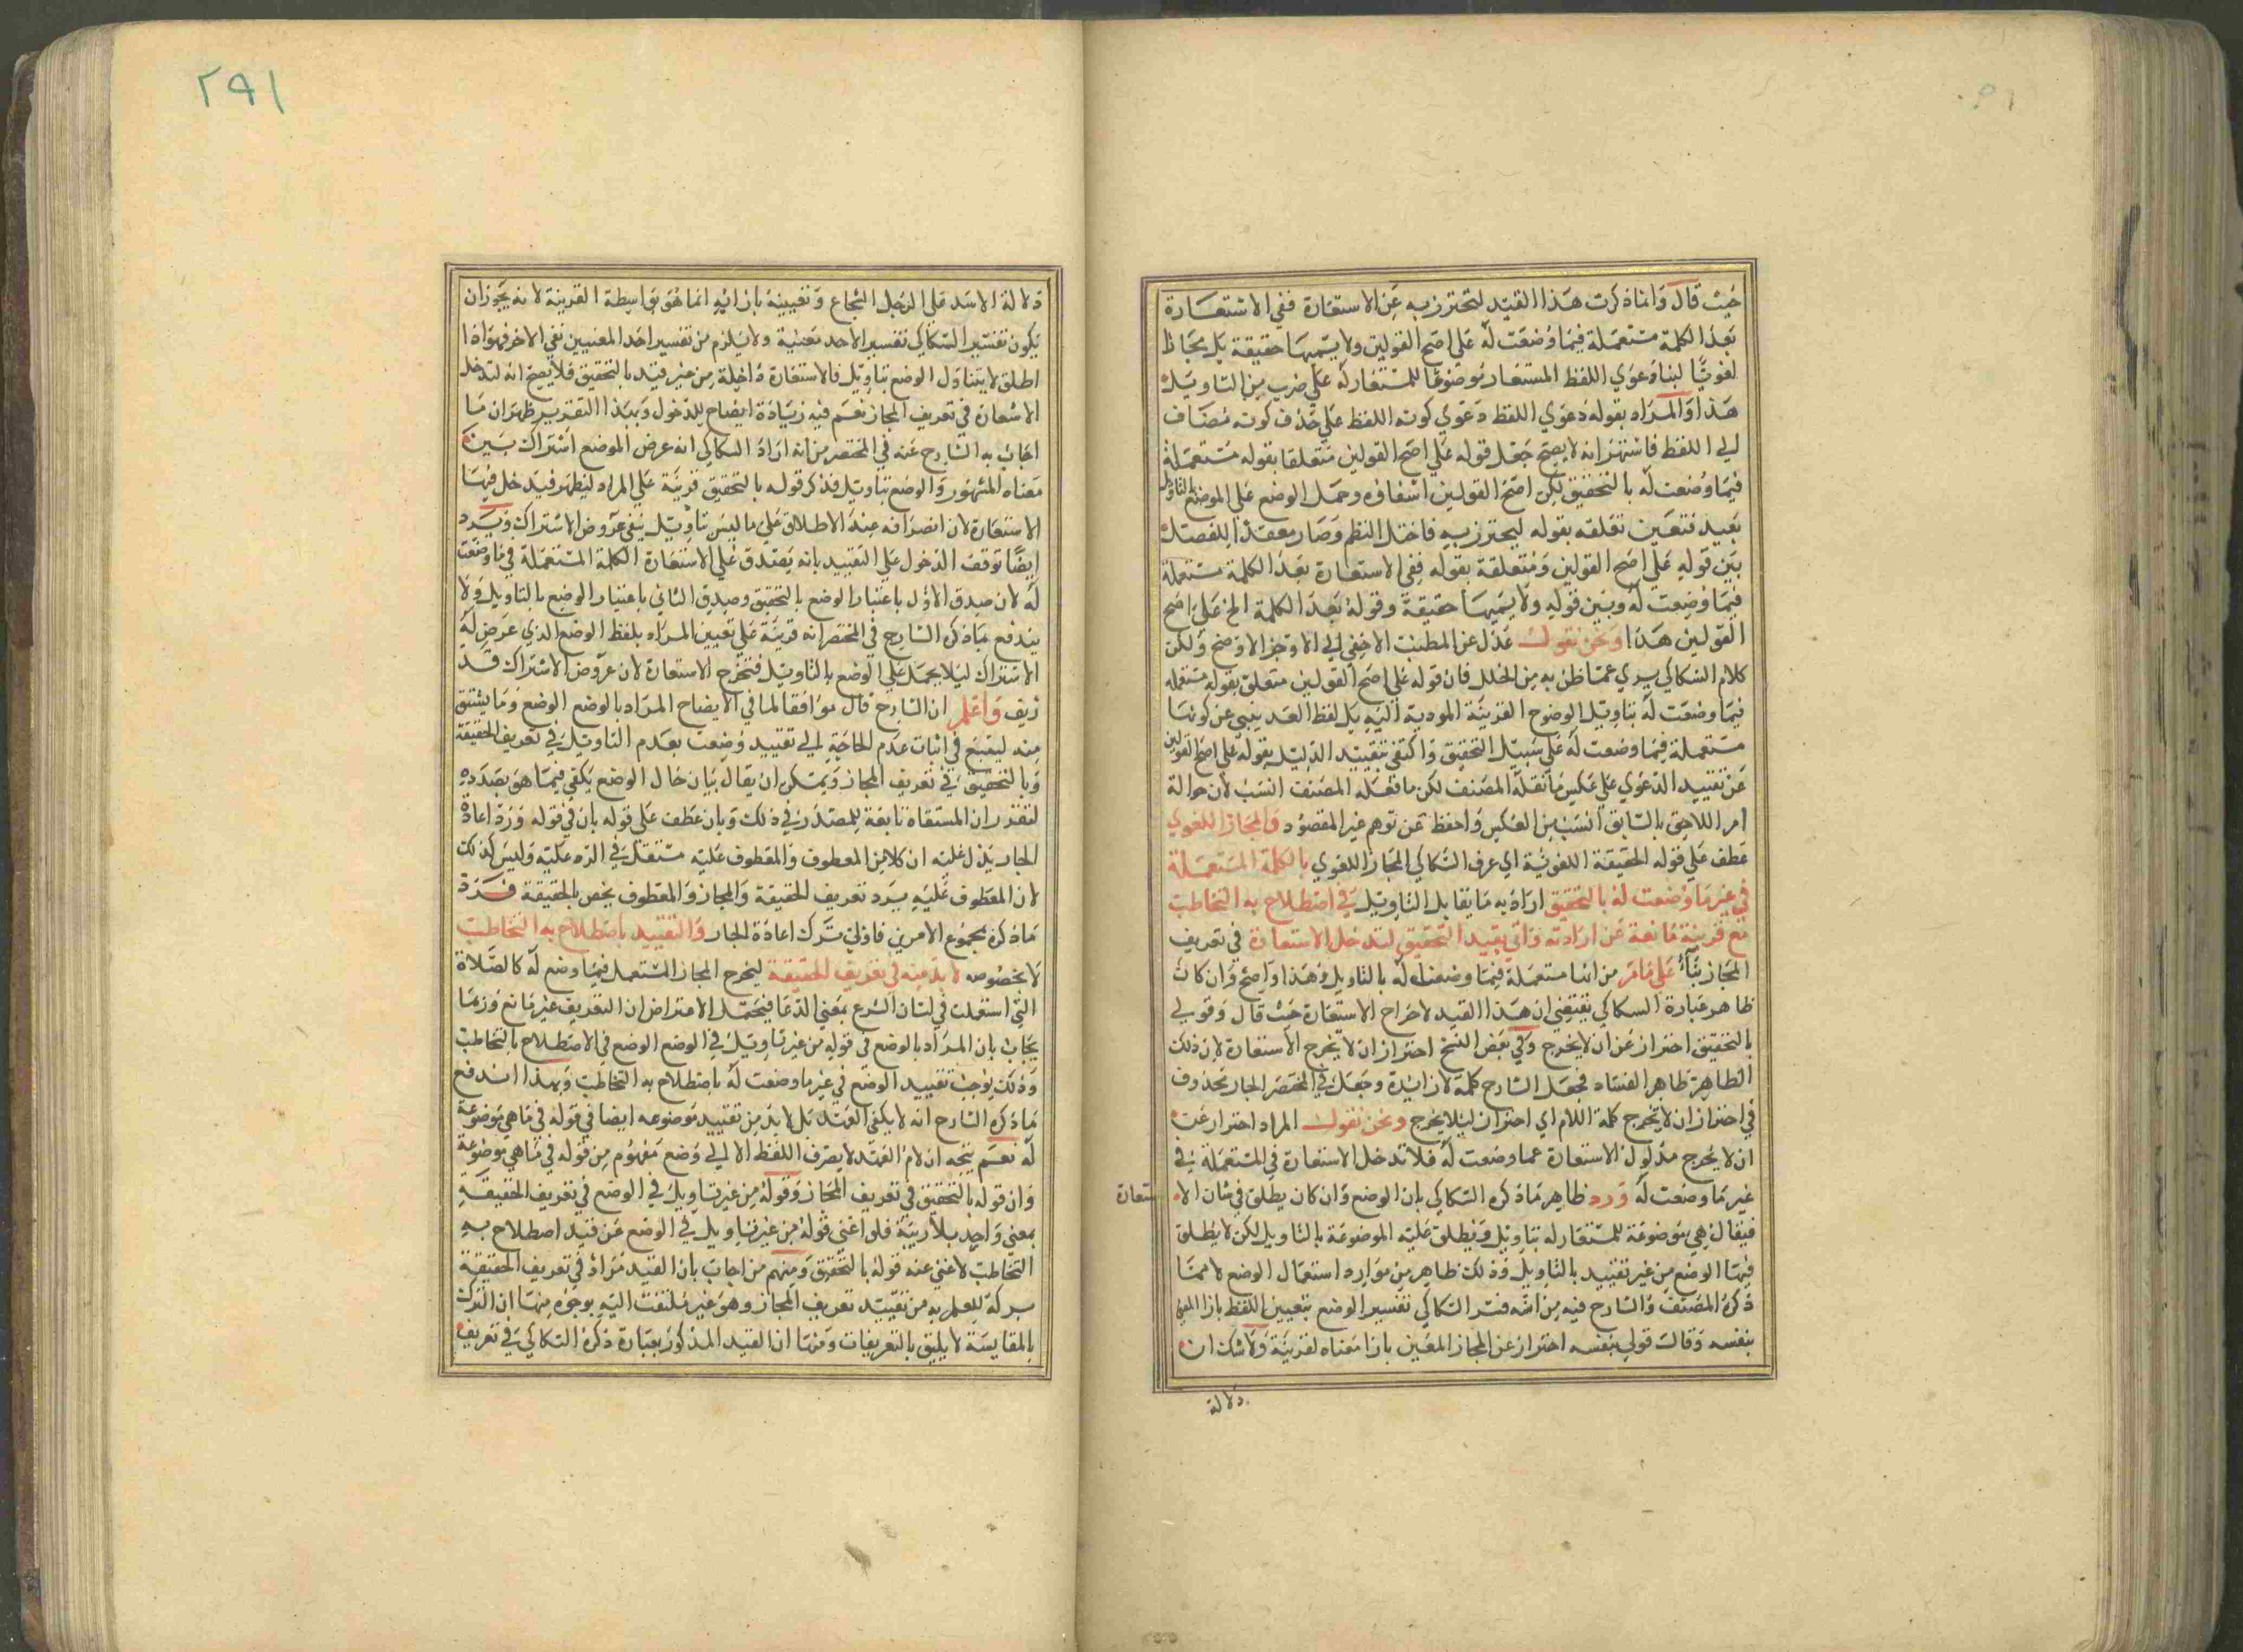 حيث قال وانما ذكرت هذا القيد لتحترز به عن الاستعارة ففي الاستعارة
تعد الكلمة مستعملة فيما وضعت له على اصح القولين ولا يسميها حقيقة بل مجازا
لغويا لبناء دعوي اللفظ المستعار موضوعا للمستعار له علي ضرب من التاويل
هذا والمراد بقوله دعوي اللفظ دعوي كونه اللفظ علي حذف كونه مضاف
الي اللفظ فاشتهر انه لا يصح جعل قوله علي اصح القولين متعلقا بقوله مستعملة
فيما وضعت له بالتحقيق لكن اصح القولين انتفاؤه وحمل الوضع علي الوضع بالتاويل
بعيد فتعين تعلقه بقوله ليحترز به فاختل النظم وصار معقدا للفصل
بين قوله علي اصح القولين ومتعلقة بقوله ففي الاستعارة تعد الكلمة مستعملة
فيما وضعت له وبين قوله ولا يسميها حقيقة وقوله تعد الكلمة الخ علي اصح
القولين هذا ونحن نقول عدل عن المطنب الاخفي الي الاوجز الاوضح ولكن
كلام السكاكي بري عما ظن به من الخلل فان قوله علي اصح القولين متعلق بقوله مستعملة
فيما وضعت له بتاويل لوضوح القرينة المودية اليه بل لفظ العد ينبي عن كونها
مستعملة فيما وضعت له علي سبيل التحقيق واكتفي بتقييد الدليل بقوله علي اصح القولين
عن تقييد الدعوي علي عكس ما نقله المصنف لكن ما فعله المصنف انسب لان حوالة
امر اللاحق بالسابق انسب من العكس واحفظ عن توهم غير المقصود والمجاز اللغوي
عطف علي قوله الحقيقة اللغوية اي عرف السكاكي المجاز اللغوي بالكلمة المستعملة
في غير ما وضعت له بالتحقيق اراد به ما يقابل التاويل في اصطلاح به التخاطب
مع قرينة مانعة عن ارادته واتي بقيد التحقيق لتدخل الاستعارة في تعريف
المجاز بناء علي ما مر من انها مستعملة فيما وضعت له بالتاويل وهذا واضح وان كان
ظاهر عبارة السكاكي يقتضي ان هذا القيد لاخراج الاستعارة حيث قال وقولي
بالتحقيق احتراز عن ان لا يخرج وفي بعض النسخ احتراز ان لا يخرج الاستعارة لان ذلك
الظاهر ظاهر الفساد فجعل الشارح كلمة لا زائدة وجعل في المختصر الجار محذوف
في احتراز ان لا يخرج كلمة اللام اي احتراز ليلا يخرج ونحن نقول المراد احتراز عن
ان لا يخرج مدلول الاستعارة عما وضعت له فلا تدخل الاستعارة في المستعملة في
غير ما وضعت له ورد ظاهر ما ذكره السكاكي بان الوضع وان كان يطلق في شان الاستعارة
فيقال هي موضوعة للمستعار له بتاويل ويطلق عليه الموضوعة بالتاويل لكن لا يطلق
فيها الوضع من غير تقييد بالتاويل وذلك ظاهر من موارد استعمال الوضع لا مما
ذكره المصنف والشارح فيه من انه فسر السكاكي تفسير الوضع بتعيين اللفظ بازاء المعني
بنفسه وقال قولي بنفسه احتراز عن المجاز المعين بازا معناه لقرينة ولا شك ان
دلالة
٢٩١
دلالة الاسد علي الرجل الشجاع وتعيينه بازائه انما هو بواسطة القرينة لانه يجوز ان
يكون تفسير السكاكي تفسير الاحد معنيية ولا يلزم من تفسير احد المعنيين نفي الاخر فهو اذا
اطلق لا يتناول الوضع بتاويل فالاستعارة داخلة من غير قيد بالتحقيق فلا يصح انه لتدخل
الاستعارة في تعريف المجاز نعم فيه زيادة ايضاح للدخول وبهذا التقرير ظهر ان ما
اجاب به الشارح عنه في المختصر من انه اراد السكاكي انه عرض الموضع اشتراك بين
معناه المشهور والوضع بتاويل فذكر قوله بالتحقيق قرينة علي المراد ليظهر فيدخل فيها
الاستعارة لان انصرافه عند الاطلاق علي ما ليس بتاويل ينفي عروض الاشتراك ويرد
ايضا توقف الدخول علي التقييد بانه يصدق علي الاستعارة الكلمة المستعملة في ما وضعت
له لان صدق الاول باعتبار الوضع بالتحقيق وصدق الثاني باعتبار الوضع بالتاويل ولا
يندفع بما ذكره الشارح في المختصر انه قرينة علي تعيين المراد بلفظ الوضع الذي عرض له
الاشتراك ليلا يحمل علي الوضع بالتاويل فتخرج الاستعارة لان عروض الاشتراك قد
زيف واعلم ان الشارح قال موافقا لما في الايضاح المراد بالوضع الوضع وما يشتق
منه ليقنع في اثبات عدم الحاجة الي تقييد وضعت بعدم التاويل في تعريف الحقيقة
وبالتحقيق في تعريف المجاز ويمكن ان يقال بيان حال الوضع يكفي فيما هو بصدده
لتقرر ان المستقاة تابعة للمصدر في ذلك وبان عطف علي قوله بان في قوله ورد اعادة
الجار يدل عليه ان كلا من المعطوف والمعطوف عليه مستقل في الرد عليه وليس كذلك
لان المعطوف عليه يرد تعريف الحقيقة والمجاز والمعطوف يخص بالحقيقة فرد
ما ذكره مجموع الامرين فاولي ترك اعادة الجار والتقييد باصطلاح به التخاطب
لا بخصوصه لا بد منه في تعريف الحقيقة ليخرج المجاز المستعمل فيما وضع له كالصلاة
التي استعملت في لسان الشرع بمعني الدعا فيتحمل الاعتراض ان التعريف غير مانع وربما
يجاب بان المراد بالوضع في قوله من غير تاويل في الوضع الوضع في الاصطلاح بالتخاطب
وذلك يوجب تقييد الوضع في غير ما وضعت له باصطلاح به التخاطب وبهذا اندفع
ما ذكره الشارح انه لا يكفي العهد بل لا بد من تقييد موضوعه ايضا في قوله في ما هي موضوعة
له نعم يتجه ان لام العهد لا يصرف اللفظ الا الي وضع مفهوم من قوله في ما هي موضوعة
وان قوله بالتحقيق في تعريف المجاز وقوله من غير تاويل في الوضع في تعريف الحقيقة
بمعني واحد بلا ريبة فلو اغني قوله من غير تاويل في الوضع عن قيد اصطلاح به
التخاطب لاغني عنه قوله بالتحقيق ومنهم من اجاب بان القيد مراد في تعريف الحقيقة
تركه للعلم به من تقييد تعريف المجاز وهو غير ملتفت اليه بوجوه منها ان الترك
بالمقايسة لا يليق بالتعريفات ومنها ان القيد المذكور بعبارة ذكره السكاكي في تعريف